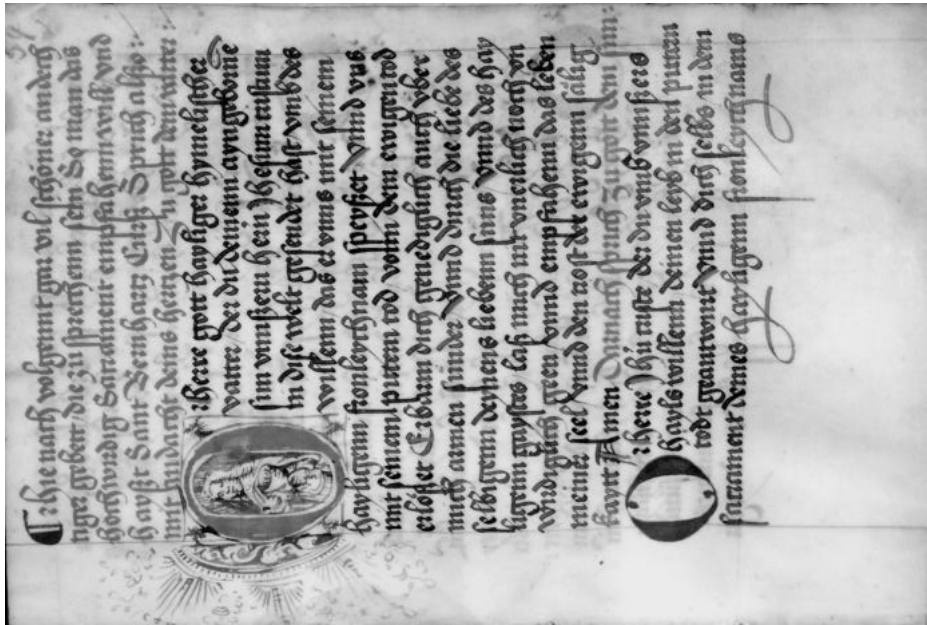 54
Hie nach volgennt gar vil schöner andech
tiger gebett die zu sprechenn sein So man das
hochwirdig Sacrament empfahenn will vnd
hayßt Sant Bernhartz Cursß Sprich also:
mit andacht deins hertzen Zu gott dem vatter:
O herre gott hayliger hymelischer
vatter der du deinenn ayngeborne
sun vnnsern hern Jhesum cristum
In dise welt gesendt hast vmb des
willenn das er vnns mit seinem
hayligenn fronleychnam speyset Vnnd vns
mit seinem pittern tod vonn dem ewigen tod
erlößet Erbarm dich genediglich auch vber
mich armen sünder Vnnd durch die liebe des
selbigenn deines liebenn suns vnnd des hay
ligenn gaystes laß mich nit vnerlich noch vn
wirdiglich geen vonnd empfahenn das leben
meiner seel vnnd den trost der ewigenn sälig
kayt Amen Darnach sprich zu gott dem sun:
O herre Jhesu criste der du vmb vnnsers
hayls willenn deinen leyb in den pittern
todt geanntwurt vnnd dich selbs in dem
sacrament deines hayligenn fronleychnams